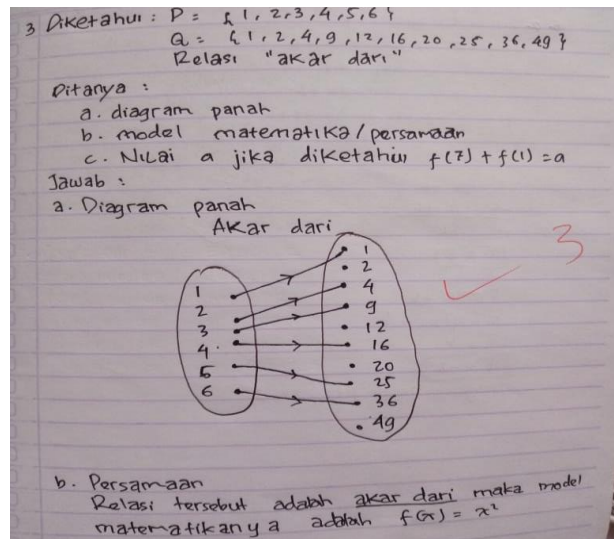 3 Diketahui : P = { 1, 2, 3, 4, 5, 6 }
Q = { 1, 2, 4, 9, 12, 16, 20, 25, 36, 49 }
Relasi "akar dari"
Ditanya :
a. diagram panah
b. model matematika / persamaan
c. Nilai a jika diketahui f(7) + f(1) = a
Jawab :
a. Diagram panah
Akar dari
1
2
3
4
5
6
1
2
4
9
12
16
20
25
36
49
3
b. Persamaan
Relasi tersebut adalah akar dari maka model
matematikanya adalah f(x) = x²